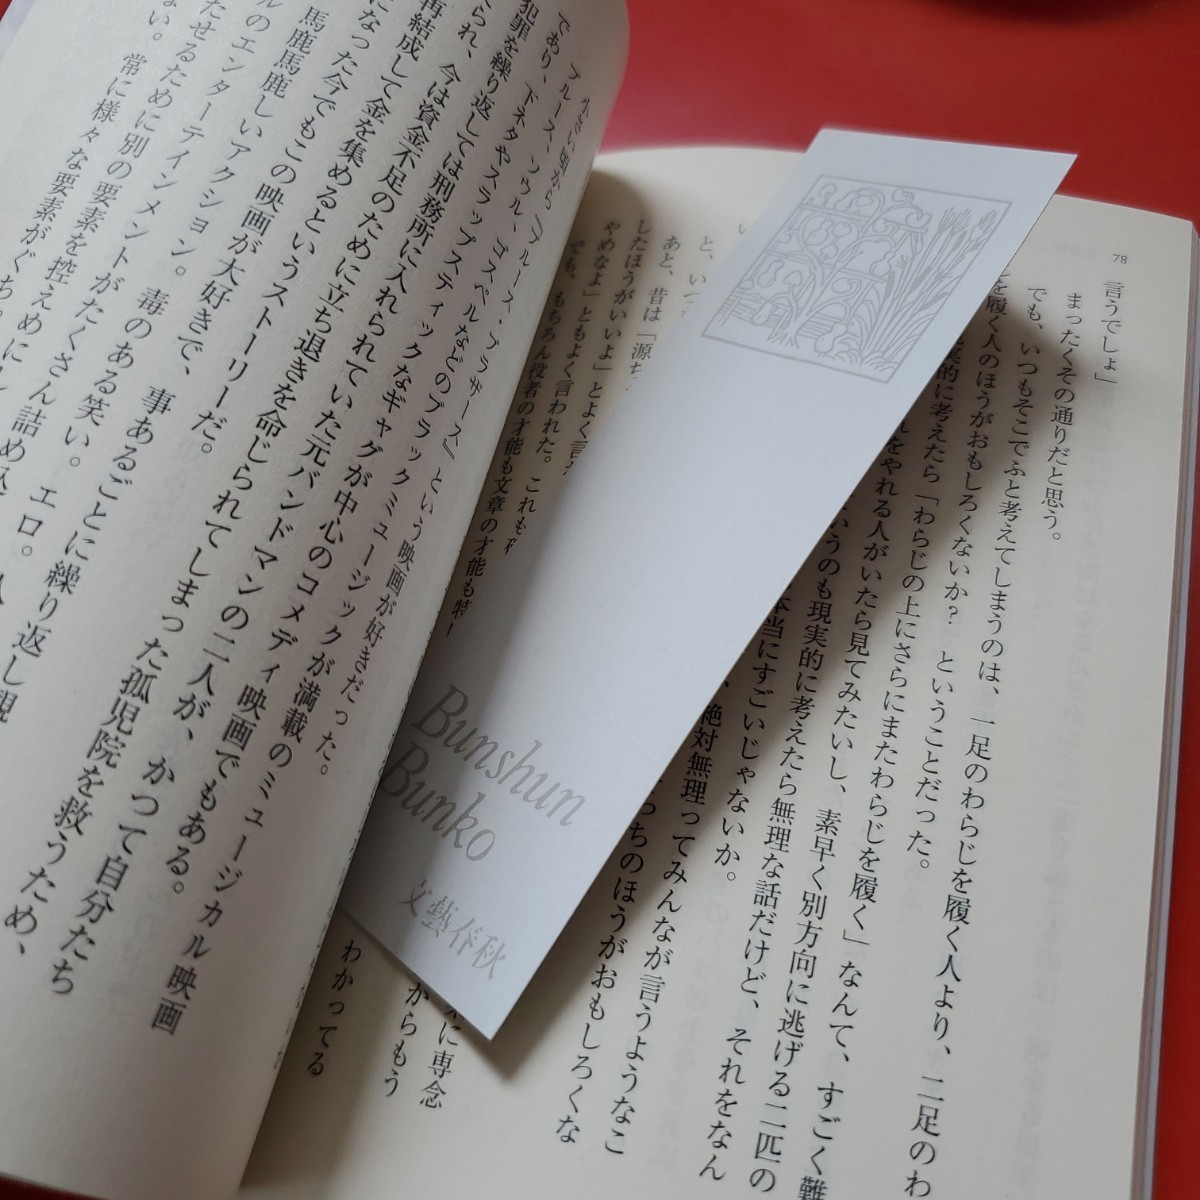 小さい頃から『ブルース・ブラザース』という映画が好きだった。
ブルース、ソウル、ゴスペルなどのブラックミュージックが満載のミュージカル映画
であり、下ネタやスラップスティックなギャグが中心のコメディ映画でもある。
犯罪を繰り返しては刑務所に入れられていた元バンドマンの二人が、かつて自分たち
られ、今は資金不足のために立ち退きを命じられてしまった孤児院を救うため、
再結成して金を集めるというストーリーだ。
になった今でもこの映画が大好きで、事あるごとに繰り返し観
馬鹿馬鹿しいアクション。毒のある笑い。エロ。
ルのエンターテインメント
たせるために別の要素がたくさん詰め込
ない。常に様々な要素を控えめに
78
言うでしょ」
まったくその通りだと思う。
でも、いつもそこでふと考えてしまうのは、一足のわらじを履く人より、二足のわ
を履く人のほうがおもしろくないか? ということだった。
実的に考えたら「わらじの上にさらにまたわらじを履く」なんて、すごく難
れをやれる人がいたら見てみたいし、素早く別方向に逃げる二匹の
いうのも現実的に考えたら無理な話だけど、それをなん
本当にすごいじゃないか。
絶対無理ってみんなが言うようなこ
っちのほうがおもしろくな
と、いつ
あと、昔は「源ち
したほうがいいよ」とよく言
やめなよ」ともよく言われた。これも
でも、もちろん役者の才能も文章の才能も特
に専念
からもう
わかってる
Bunshun
Bunko
文藝春秋